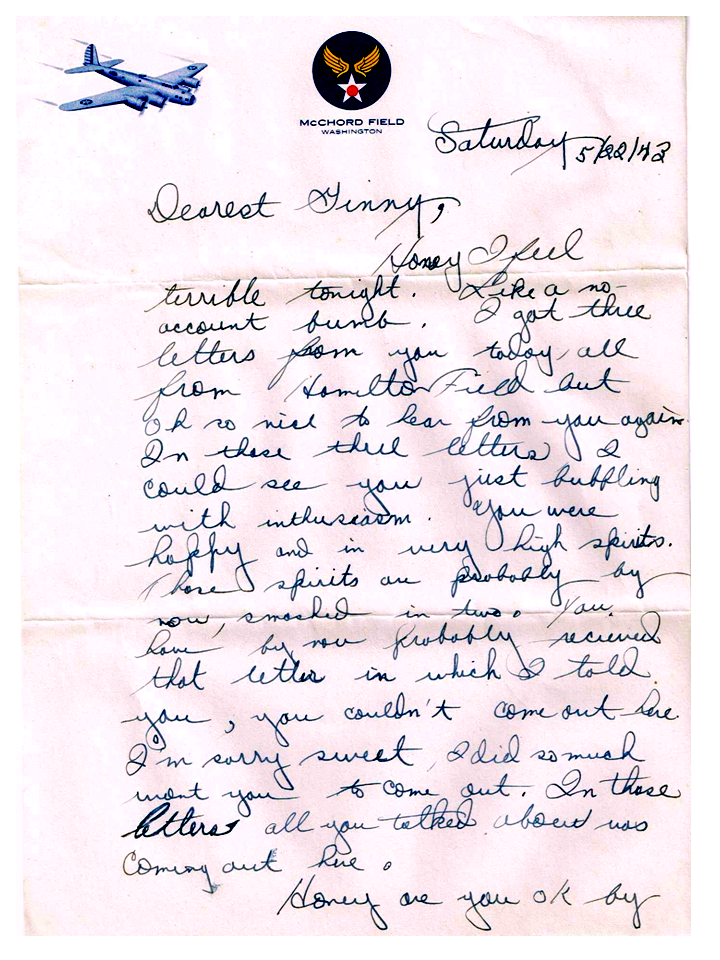 McCHORD FIELD
WASHINGTON
Saturday 5/22/43
Dearest Ginny,
Honey I feel
terrible tonight. Like a no-
account bumb. I got three
letters from you today, all
from Hamilton Field but
oh so nice to hear from you again.
In those three letters I
could see you just bubbling
with inthusiasm. You were
happy and in very high spirits.
Those spirits are probably by
now, smashed in two. You
have by now probably recieved
that letter in which I told
you, you couldn't come out here.
I'm sorry sweet, I did so much
want you to come out. In those
letters all you talked about was
coming out here.
Honey are you OK by